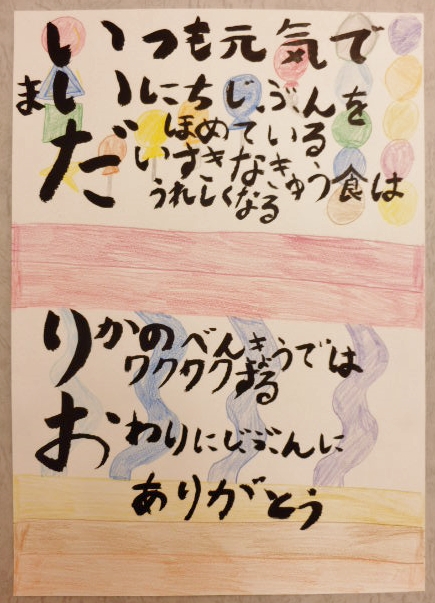 いつも元気で
まいにちじぶんを
ほめている
だいすきなきゅう食は
うれしくなる
りかのべんきょうでは
ワクワクする
おわりにじぶんに
ありがとう